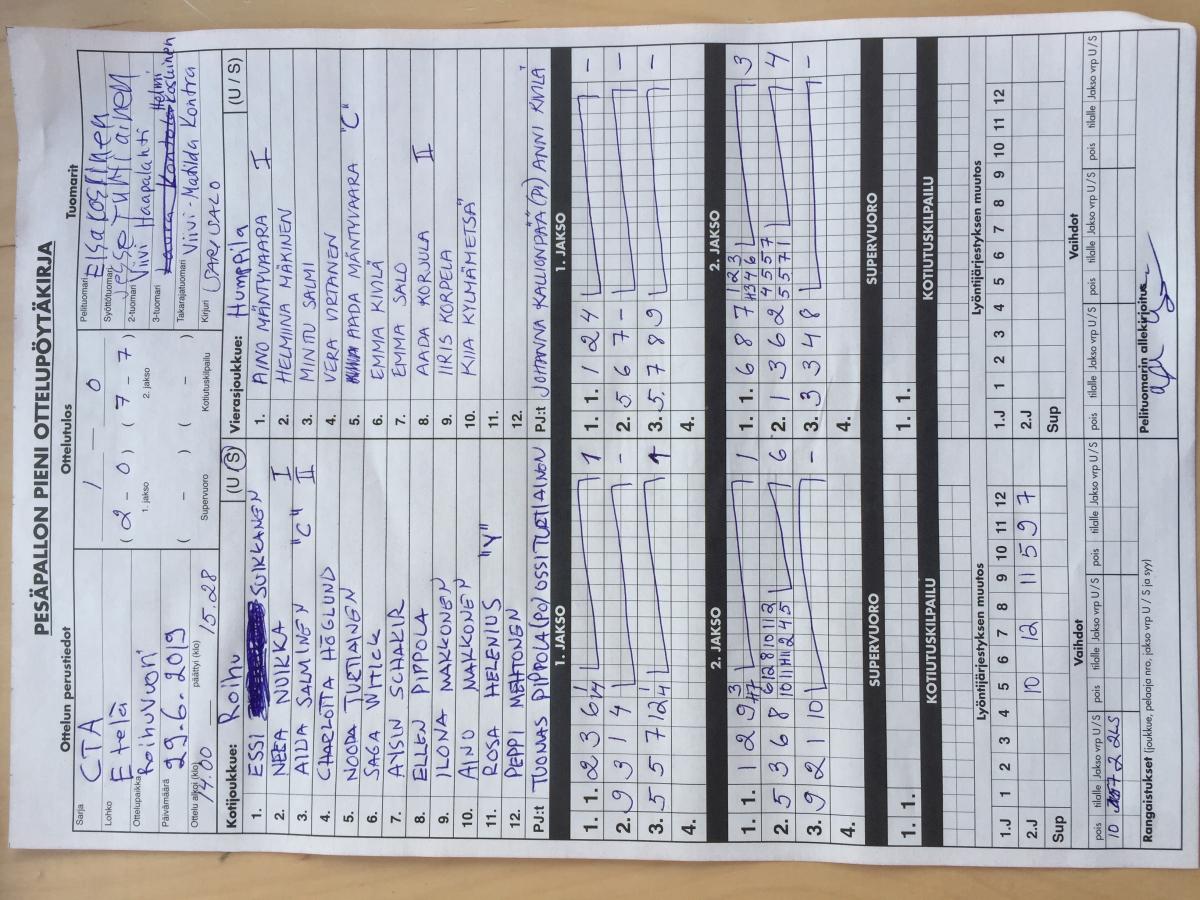 PESÄPALLON PIENI OTTELUPÖYTÄKIRJA
Ottelun perustiedot
Sarja CTA
Lohko Etelä
Ottelupaikka Roihuvuori
Päivämäärä 29.6.2019
Ottelu alkoi (klo) 14.00 päättyi (klo) 15.28
Ottelutulos
1 — 0
( 2 – 0 ) ( 7 – 7 )
1. jakso 2. jakso
( – ) ( – )
Supervuoro Kotiutuskilpailu
Tuomarit
Pelituomari
Syöttötuomari Jesse
2-tuomari Viivi Haapalahti
3-tuomari Helmi
Takarajatuomari Viivi-Matilda Kontra
Kirjuri SARI SALO
Kotijoukkue: Roihu (U / S)
1. ESSI SUIKKANEN
2. NEEA NUIKKA I
3. AILA SALMINEN "C" II
4. CHARLOTTA HÖGLUND
5. NOORA TURTIAINEN
6. SAGA WITICK
7. AYSIN SCHAKIR
8. ELLEN PIPPOLA
9. ILONA MAKKONEN
10. AINO MAKKONEN
11. ROSA HELENIUS "Y"
12. PEPPI MEHTONEN
PJ:t TUOMAS PIPPOLA (PO) OSSI TURTIAINEN
Vierasjoukkue: Humppila (U / S)
1. AINO MÄNTYVAARA I
2. HELMIINA MÄKINEN
3. MINTTU SALMI
4. VERA VIRTANEN
5. AADA MÄNTYVAARA "C"
6. EMMA KIVILÄ
7. EMMA SALO
8. AADA KORJULA II
9. IIRIS KORPELA
10. KIIA KYLMÄMETSÄ
11.
12.
PJ:t JOHANNA KALLIONPÄÄ (PJ) ANNI KIVILÄ
1. JAKSO
1. 1. 2 3 6 1
2. 9 1 4 -
3. 5 5 7 12 1
4.
1. JAKSO
1. 1. 1 2 4 -
2. 5 6 7 -
3. 5 7 8 9 -
4.
2. JAKSO
1. 1. 1 2 9 3 1
2. 5 3 6 8 6 12 8 10 11 12 6
10 11 11 2 4 5
3. 9 2 1 10 -
4.
2. JAKSO
1. 1. 6 8 7 1 2 3 3
2. 1 3 6 2 4 5 5 7 4
5 5 7 1
3. 3 3 4 8 -
4.
SUPERVUORO
1. 1.
SUPERVUORO
1. 1.
KOTIUTUSKILPAILU
KOTIUTUSKILPAILU
Lyöntijärjestyksen muutos
1 2 3 4 5 6 7 8 9 10 11 12
1.J
2.J 10 12 11 5 9 7
Sup
Lyöntijärjestyksen muutos
1 2 3 4 5 6 7 8 9 10 11 12
1.J
2.J
Sup
Vaihdot
pois tilalle Jakso vrp U / S pois tilalle Jakso vrp U / S pois tilalle Jakso vrp U / S
10 7 2 2LS
Vaihdot
pois tilalle Jakso vrp U / S pois tilalle Jakso vrp U / S pois tilalle Jakso vrp U / S
Rangaistukset (joukkue, pelaaja nro, jakso vrp U / S ja syy)
Pelituomarin allekirjoitus